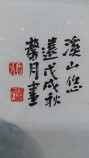 溪山悠
遠戊戌秋
馨月畫